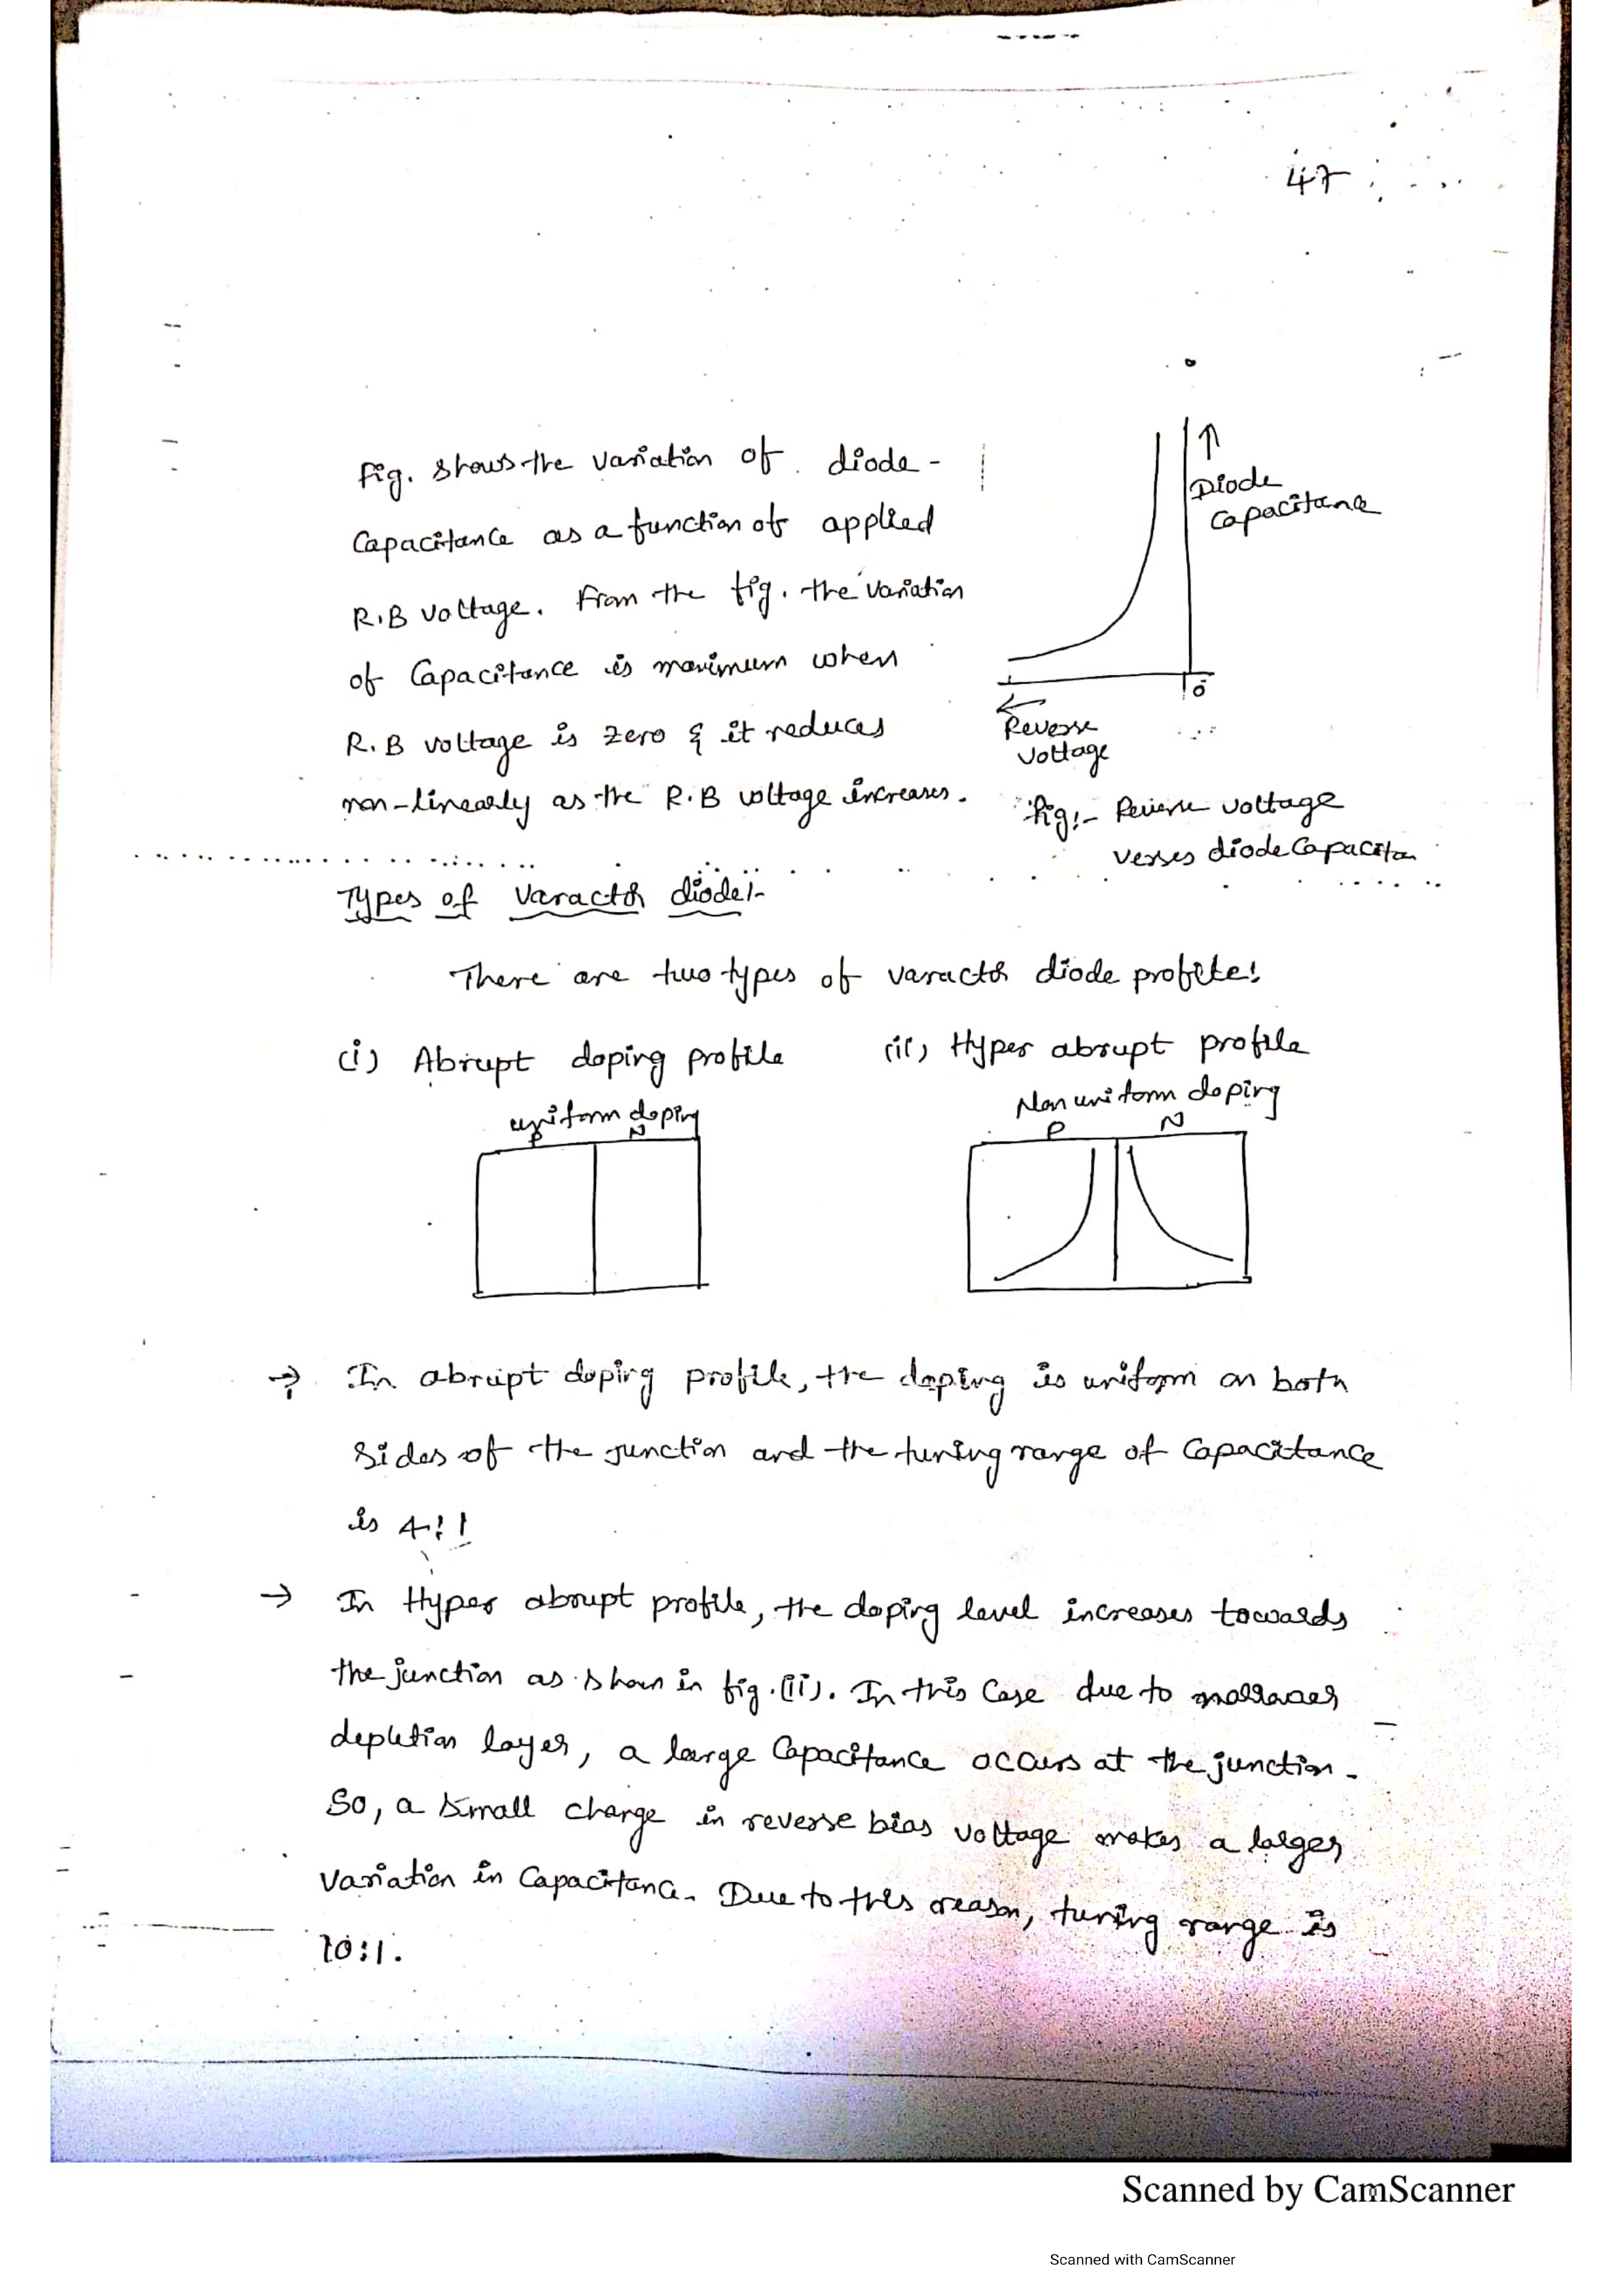 47
Fig. shows the variation of diode-
Capacitance as a function of applied
R.B voltage. From the fig. the variation
of Capacitance is maximum when
R.B voltage is zero & it reduces
non-linearly as the R.B voltage increases.
↑
Diode
Capacitance
0
←
Reverse
Voltage
Fig:- Reverse voltage
verses diode Capacitan
Types of varactor diode:-
There are two types of varactor diode profile:
(i) Abrupt doping profile (ii) Hyper abrupt profile
uniform doping
P N
Non uniform doping
P N
→ In abrupt doping profile, the doping is uniform on both
sides of the junction and the tuning range of Capacitance
is 4:1
→ In Hyper abrupt profile, the doping level increases towards
the junction as shown in fig.(ii). In this Case due to narrower
depletion layer, a large Capacitance occurs at the junction.
So, a small change in reverse bias voltage makes a larger
variation in Capacitance. Due to this reason, tuning range is
10:1.
Scanned by CamScanner
Scanned with CamScanner